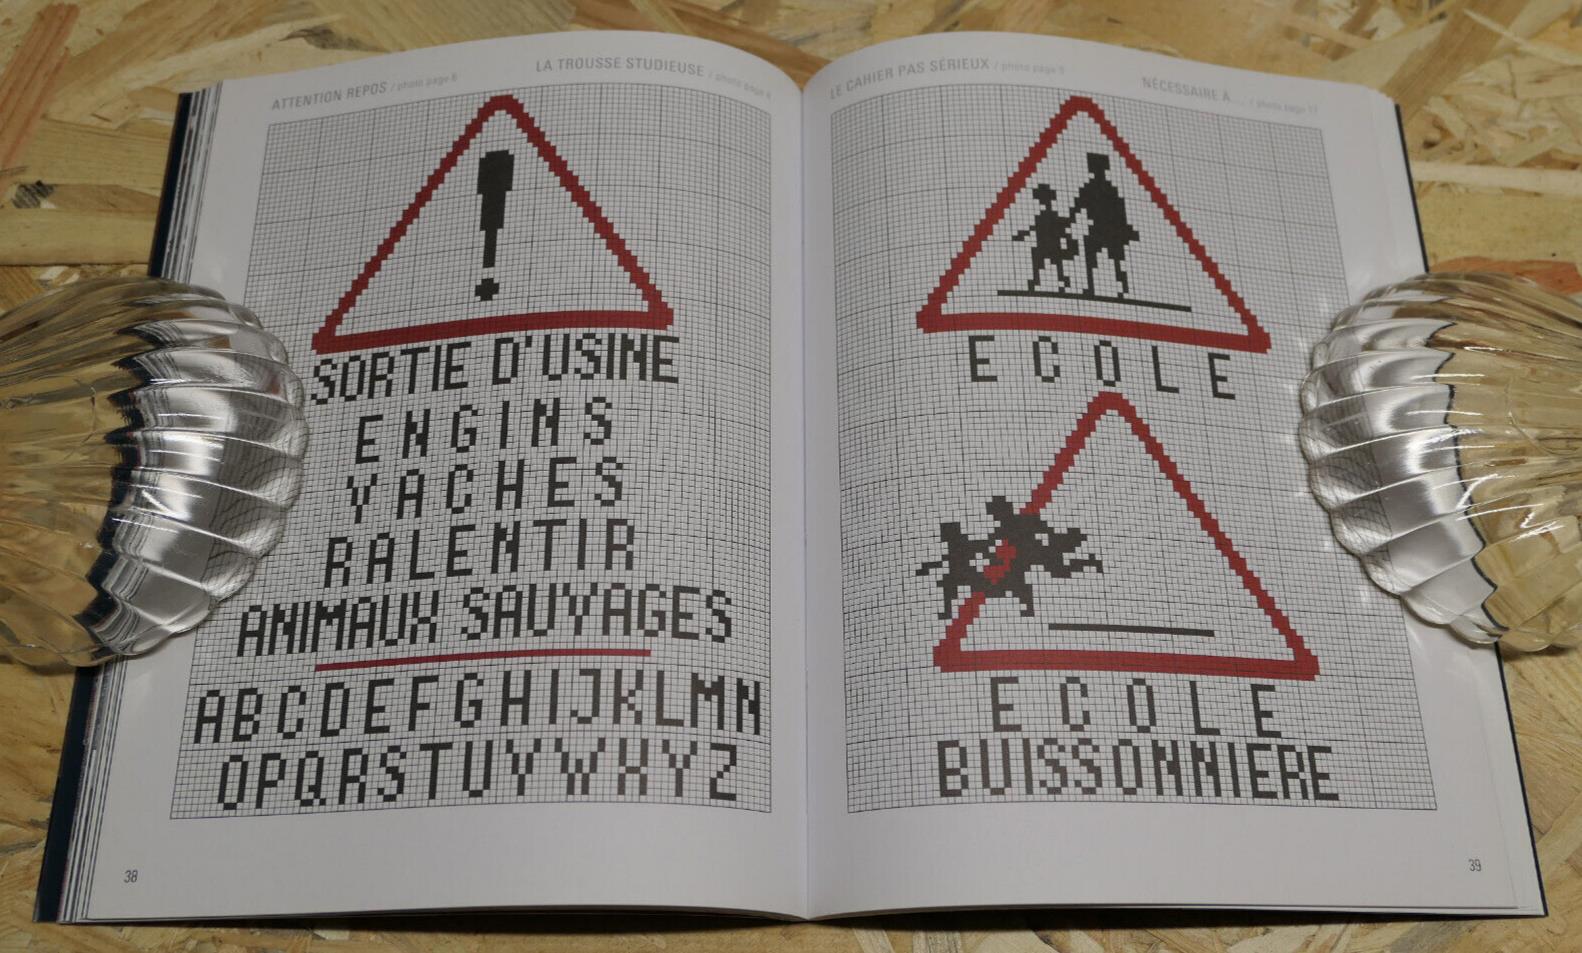 ATTENTION REPOS / photo page 6
LA TROUSSE STUDIEUSE / photo page 4
SORTIE D'USINE
ENGINS
VACHES
RALENTIR
ANIMAUX SAUVAGES
ABCDEFGHIJKLMN
OPQRSTUVWXYZ
38
LE CAHIER PAS SÉRIEUX / photo page 5
NÉCESSAIRE À... / photo page 17
ECOLE
ECOLE
BUISSONNIERE
39